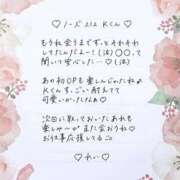 ♡ ノーズ212 Kくん ♡
もうね会うまでずっとそわそわ
してたんだよー！(汗) 〇〇、って
聞いて安心した…♡(汗)
あの初OPも楽しんじゃったね♪
Kくんす、ごい耐えてて
可愛いかったなぁ♡
次回に取っておいたあれも
楽しみ〜!! また会おうね♡
お仕事応援してるニ
♡ れい ♡